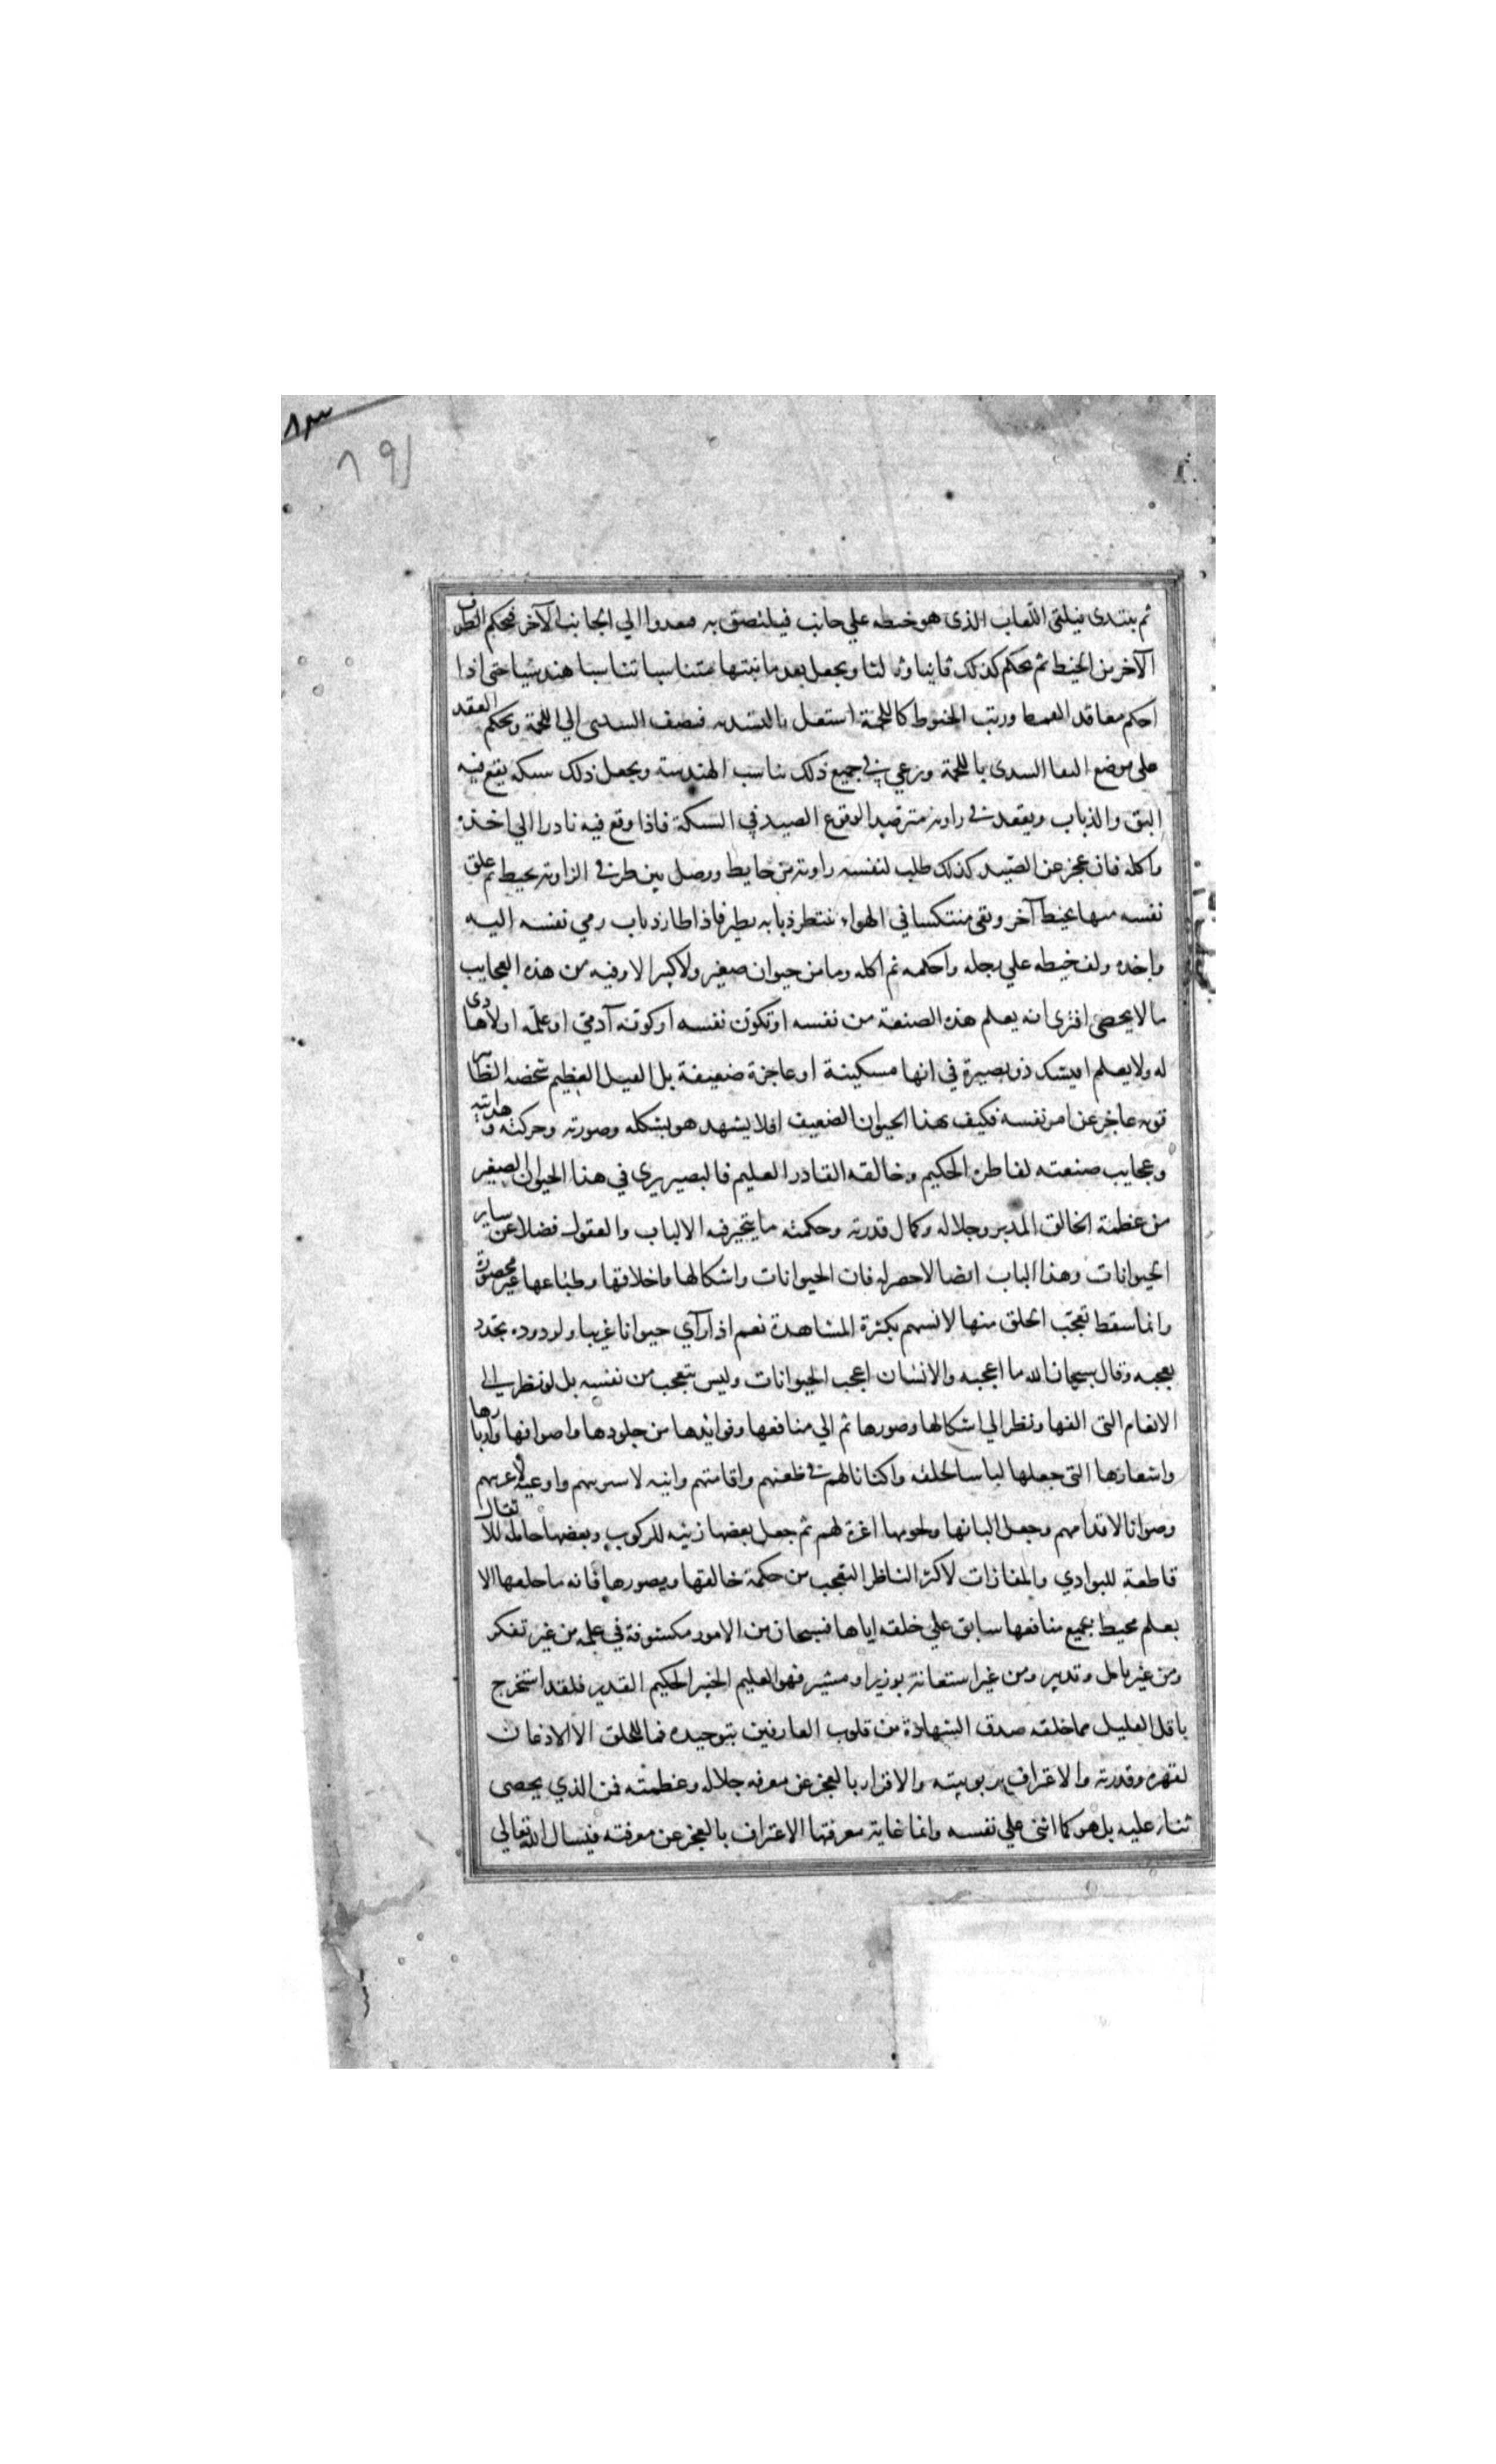 ٨٣
١٩٨
ثم يبتدى فيلقى اللعاب الذى هو خيطه على جانب فيلتصق به فيعدوا الى الجانب الآخر فيحكم الطرف
الآخر من الخيط ثم يحكم كذلك ثانيا وثالثا ويجعل بعد ما بينهما متناسبا تناسبا هندسيا حتى اذا
احكم معاقد القمط ورتب الخيوط كاللحمة اشتغل بالتسدية فيضيف السدى الى اللحمة ويحكم العقد
على موضع التقا السدى باللحمة ويرعى فى جميع ذلك تناسب الهندسة ويجعل ذلك شبكة يقع فيه
البق والذباب ويقعد فى زاوية مترصدا لوقوع الصيد فى الشبكة فاذا وقع فيه بادرا الى اخذه
واكله فان عجز عن الصيد كذلك طلب لنفسه زاوية من حايط ووصل بين طرفى الزاوية بخيط ثم علق
نفسه منها بخيط آخر وبقى منتكسا فى الهواء ينتظر ذبابه يطير فاذا طار ذباب رمى نفسه اليه
واخذه ولف خيطه على رجله واحكمه ثم اكله وما من حيوان صغير ولا كبير الا وفيه من هذه العجايب
ما لا يحصى افترى انه يعلم هذه الصنعة من نفسه او تكون نفسه او كونه آدمى او علمه اولا هادى
له ولا يعلم افيشك ذو بصيرة فى انها مسكينة او عاجزة ضعيفة بل الفيل العظيم شخصه الظاهر
قوته عاجز عن امر نفسه فكيف بهذا الحيوان الضعيف افلا يشهد هو بشكله وصورته وحركته وهدايته
وعجايب صنعته لفاطره الحكيم وخالقه القادر العليم فالبصير يرى فى هذا الحيوان الصغير
من عظمة الخالق المدبر وجلاله وكمال قدرته وحكمته ما يتحير فيه الالباب والعقول فضلا عن ساير
الحيوانات وهذا الباب ايضا لا حصر له فان الحيوانات واشكالها واخلاقها وطباعها غير محصورة
وانما سقط تعجب الخلق منها لانسهم بكثرة المشاهدة نعم اذا رآى حيوانا غريبا ولو دوده تجدد
تعجبه وقال سبحان الله ما اعجبه والانسان اعجب الحيوانات وليس يتعجب من نفسه بل لو نظر الى
الانعام التى الفها ونظر الى اشكالها وصورها ثم الى منافعها وفوايدها من جلودها واصوافها واوبارها
واشعارها التى جعلها لباسا لخلقه واكنانا لهم فى ظعنهم واقامتهم وانيه لاشربهم واوعيه لاغذيتهم
وصوانا لاقدامهم وجعل البانها ولحومها اغذية لهم ثم جعل بعضها زينه للركوب وبعضها حامله للاثقال
قاطعة للبوادى والمفازات لاكثر الناظر التعجب من حكمة خالقها ومصورها فانه ما خلقها الا
بعلم محيط بجميع منافعها سابق على خلقه اياها فسبحان من الامور مكشوفة فى علمه من غير تفكر
ومن غير تامل وتدبر ومن غير استعانة بوزير او مشير فهو العليم الخبير الحكيم القدير فلقد استخرج
باقل القليل مما خلقه صدق الشهادة من قلوب العارفين بتوحيده فما للخلق الا الاذعان
لقهره وقدرته والاعتراف بربوبيته والاقرار بالعجز عن معرفه جلاله وعظمته فمن الذى يحصى
ثناء عليه بل هو كما اثنى على نفسه وانما غاية معرفتها الاعتراف بالعجز عن معرفته فنسال الله تعالى